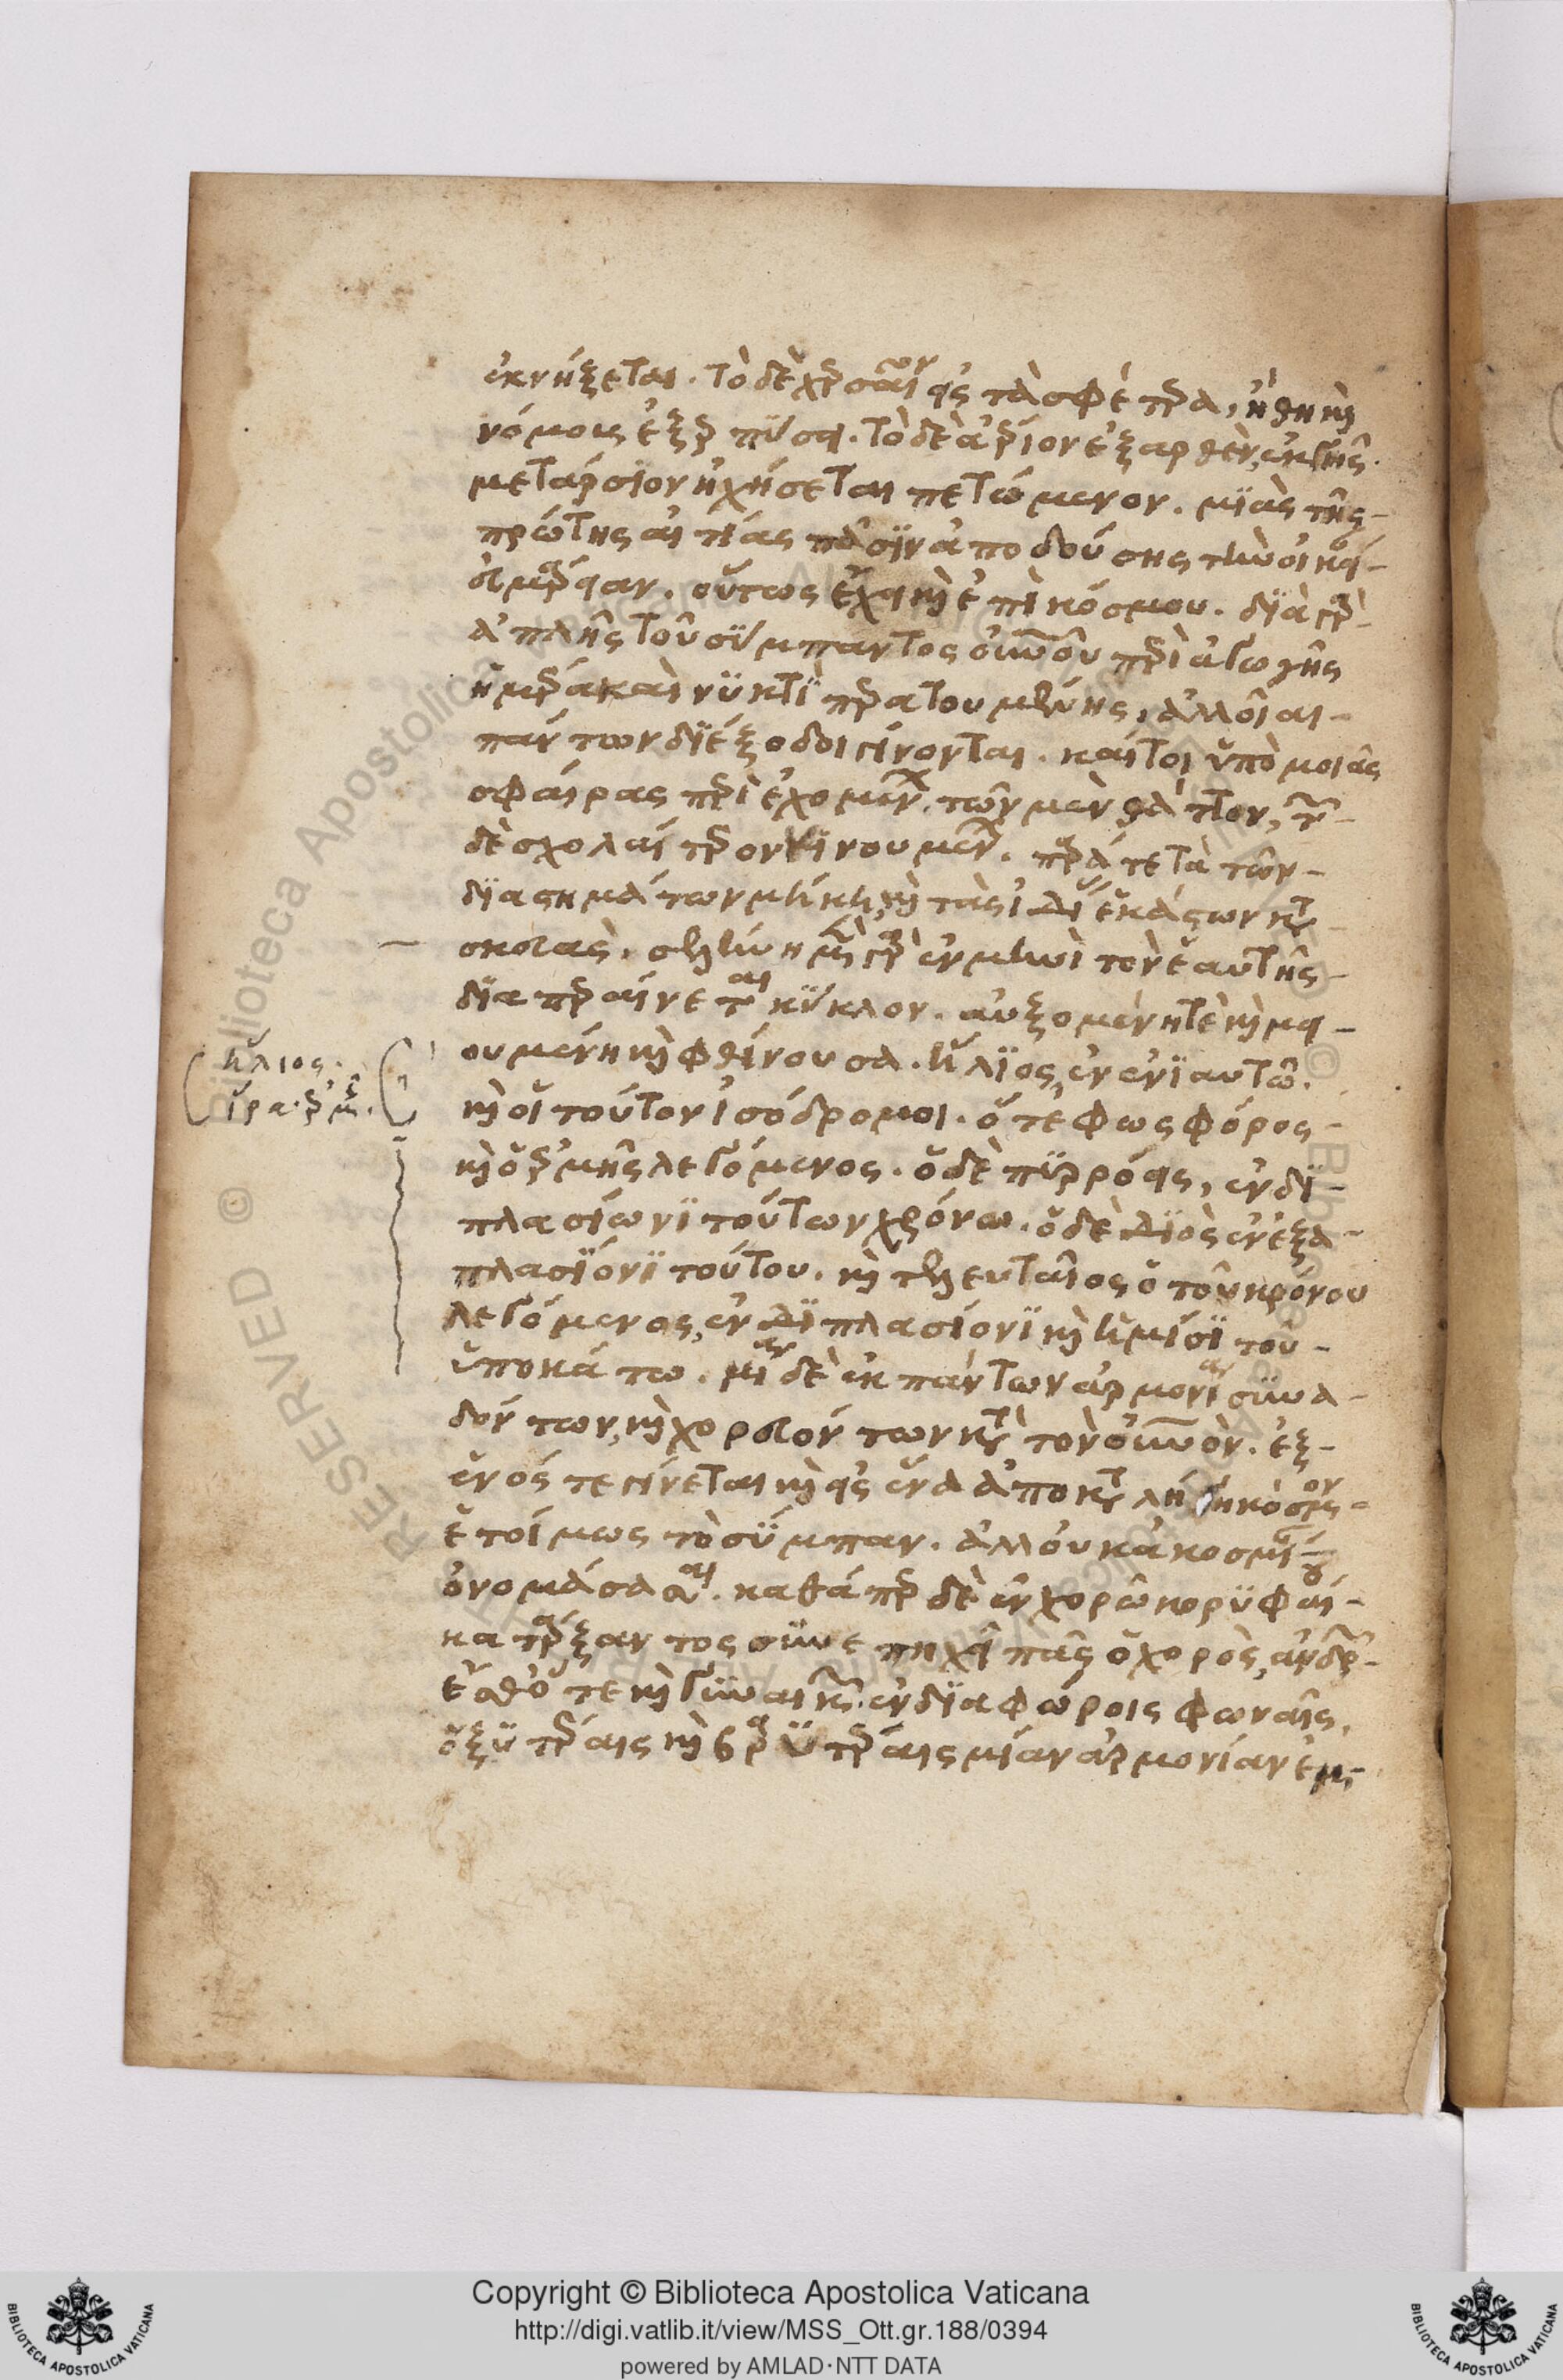 ἐκνήξεται. τὸ δὲ χερσαῖον εἰς τὰ σφέτερα ἤθη καὶ
νόμους ἐξερπύσει. τὸ δὲ ἀέριον ἐξαρθὲν, ἐκ γῆς
μετάρσιον οἰχήσεται πετώμενον. μιᾶς τῆς
πρώτης αἰτίας πᾶσιν ἀποδούσης τὴν οἰκεί-
αν εὐμάρειαν. οὕτως ἔχει καὶ ἐπὶ κόσμου. διὰ γὰρ
ἁπλῆς τοῦ σύμπαντος οὐρανοῦ περιαγωγῆς
ἡμέρα καὶ νυκτὶ περατουμένης, ἀλλοῖαι
πάντων διέξοδοι γίνονται. καίτοι ὑπὸ μοιᾶς
σφαίρας περιεχομένων. τῶν μὲν θᾶττον, τῶν
δὲ σχολαίτερον κινουμένων. παρά τε τὰ τῶν
διαστημάτων μήκη, καὶ τὰς ἰδίας ἑκάστων κατα
σκευὰς. σελήνη μὲν γὰρ ἐν μηνὶ τὸν ἑαυτῆς
διαπεραίνεται κύκλον. αὐξομένη τε καὶ μει
ουμένη καὶ φθίνουσα. ἥλιος, ἐν ἐνιαυτῶ.
καὶ οἱ τούτου ἰσόδρομοι. ὅ τε φωσφόρος
καὶ ὁ ἑρμῆς λεγόμενος. ὁ δὲ πυρρόεις, ἐν δι
πλασίωνι τούτων χρόνω. ὁ δὲ διὸς ἐν ἑξα
πλασίονι τούτου. καὶ τελευταῖος ὁ τοῦ κρόνου
λεγόμενος, ἐν διπλασίονι καὶ ἡμίσι τοῦ
ὑποκάτω. μία δὲ ἐκ πάντων ἁρμονία συνα
δόντων, καὶ χορευόντων κατὰ τὸν οὐρανὸν. ἐξ
ἑνός τε γίνεται καὶ εἰς ἓν ἀποκαταλήγει κόσμον
ἑτοίμως τὸ σύμπαν. ἀλλ' οὐκ ἀκοσμίαν
ὀνομάσασα. καθάπερ δὲ ἐν χορῶ κορυφαί
κατάρξαντος συνεπηχεῖ πᾶς ὁ χορὸς, ἀνδρῶν
ἔσθ' ὅτε καὶ γυναικῶν. ἐν διαφώροις φωναῖς,
ὀξυτέραις καὶ βαρυτέραις μίαν ἁρμονίαν ἐμ-
ἥλιος.
Copyright © Biblioteca Apostolica Vaticana
http://digi.vatlib.it/view/MSS_Ott.gr.188/0394
powered by AMLAD·NTT DATA
BIBLIOTECA APOSTOLICA VATICANA
BIBLIOTECA APOSTOLICA VATICANA